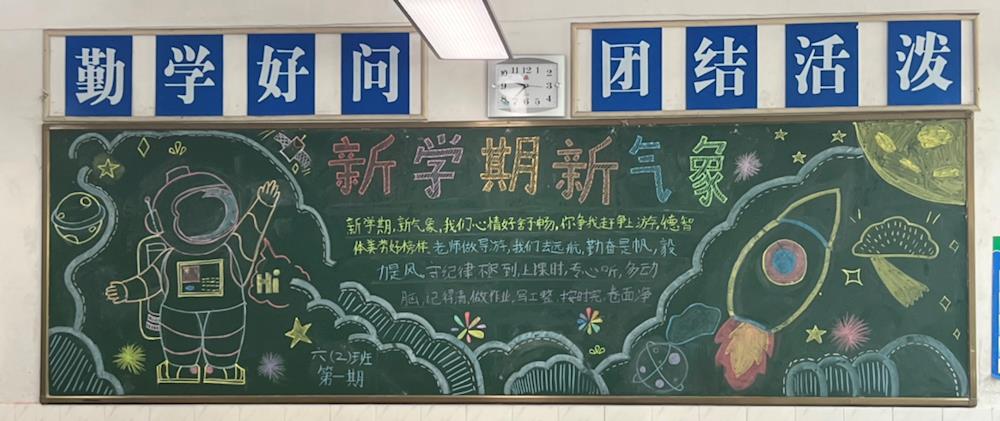 勤学好问
团结活泼
10 11 12 1 2 3 4 5 6 7 8 9
新学期新气象
新学期,新气象,我们心情好舒畅,你争我赶争上游,德智
体美劳好榜样.老师做导游,我们去远航,勤奋是帆,毅
力是风,守纪律,不迟到,上课时,专心听,多动
脑,记得清,做作业,写工整,按时完,卷面净
Hi
六(2)班
第一期